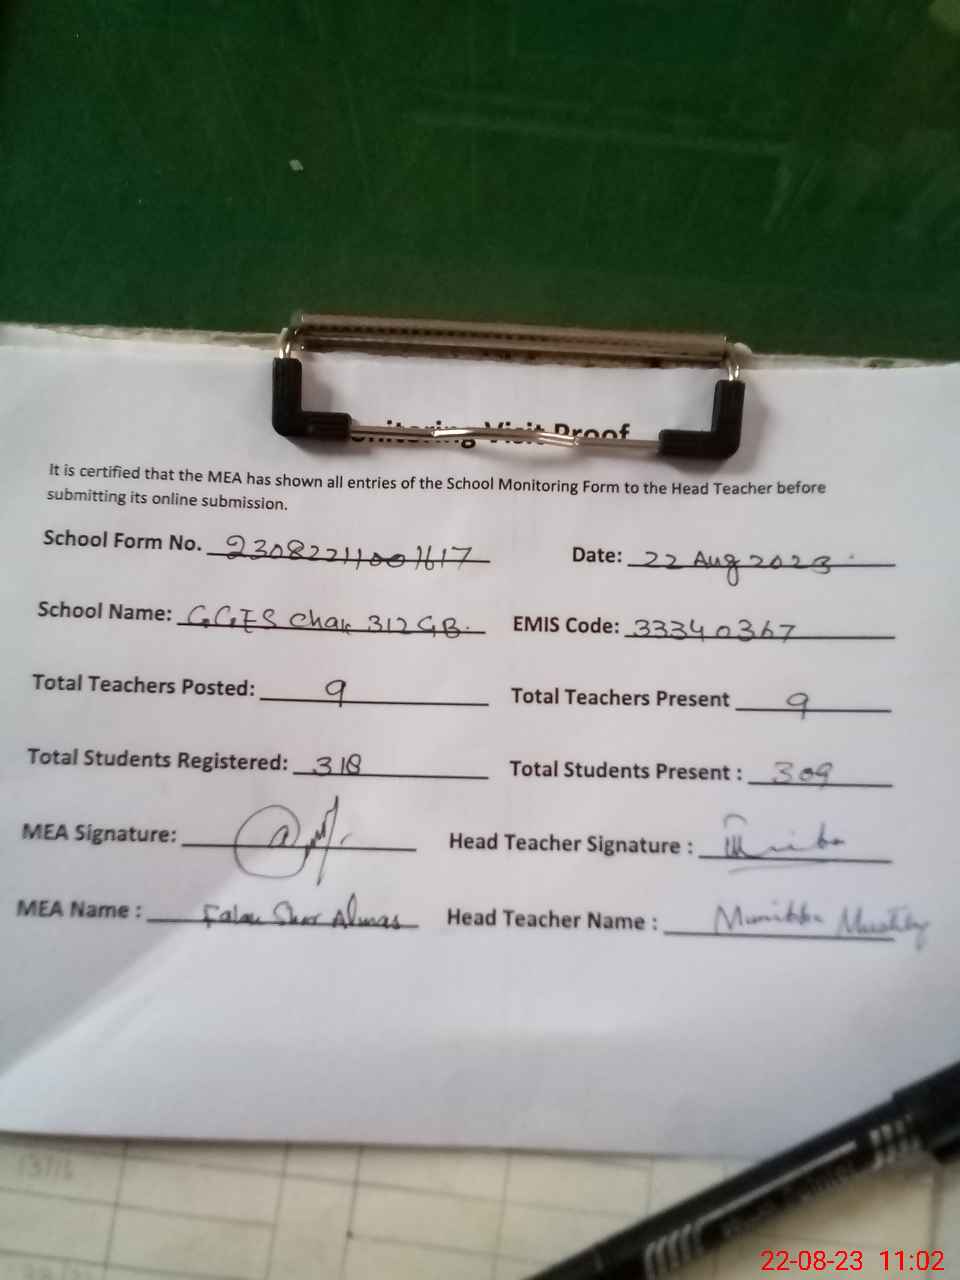 Monitoring Visit Proof
It is certified that the MEA has shown all entries of the School Monitoring Form to the Head Teacher before
submitting its online submission.
School Form No. 23082211001617 Date: 22 Aug 2023
School Name: GGES Chak 312 GB. EMIS Code: 33340367
Total Teachers Posted: 9 Total Teachers Present 9
Total Students Registered: 318 Total Students Present : 309
MEA Signature: Head Teacher Signature :
MEA Name : Sher Almas Head Teacher Name : Munibba
22-08-23 11:02